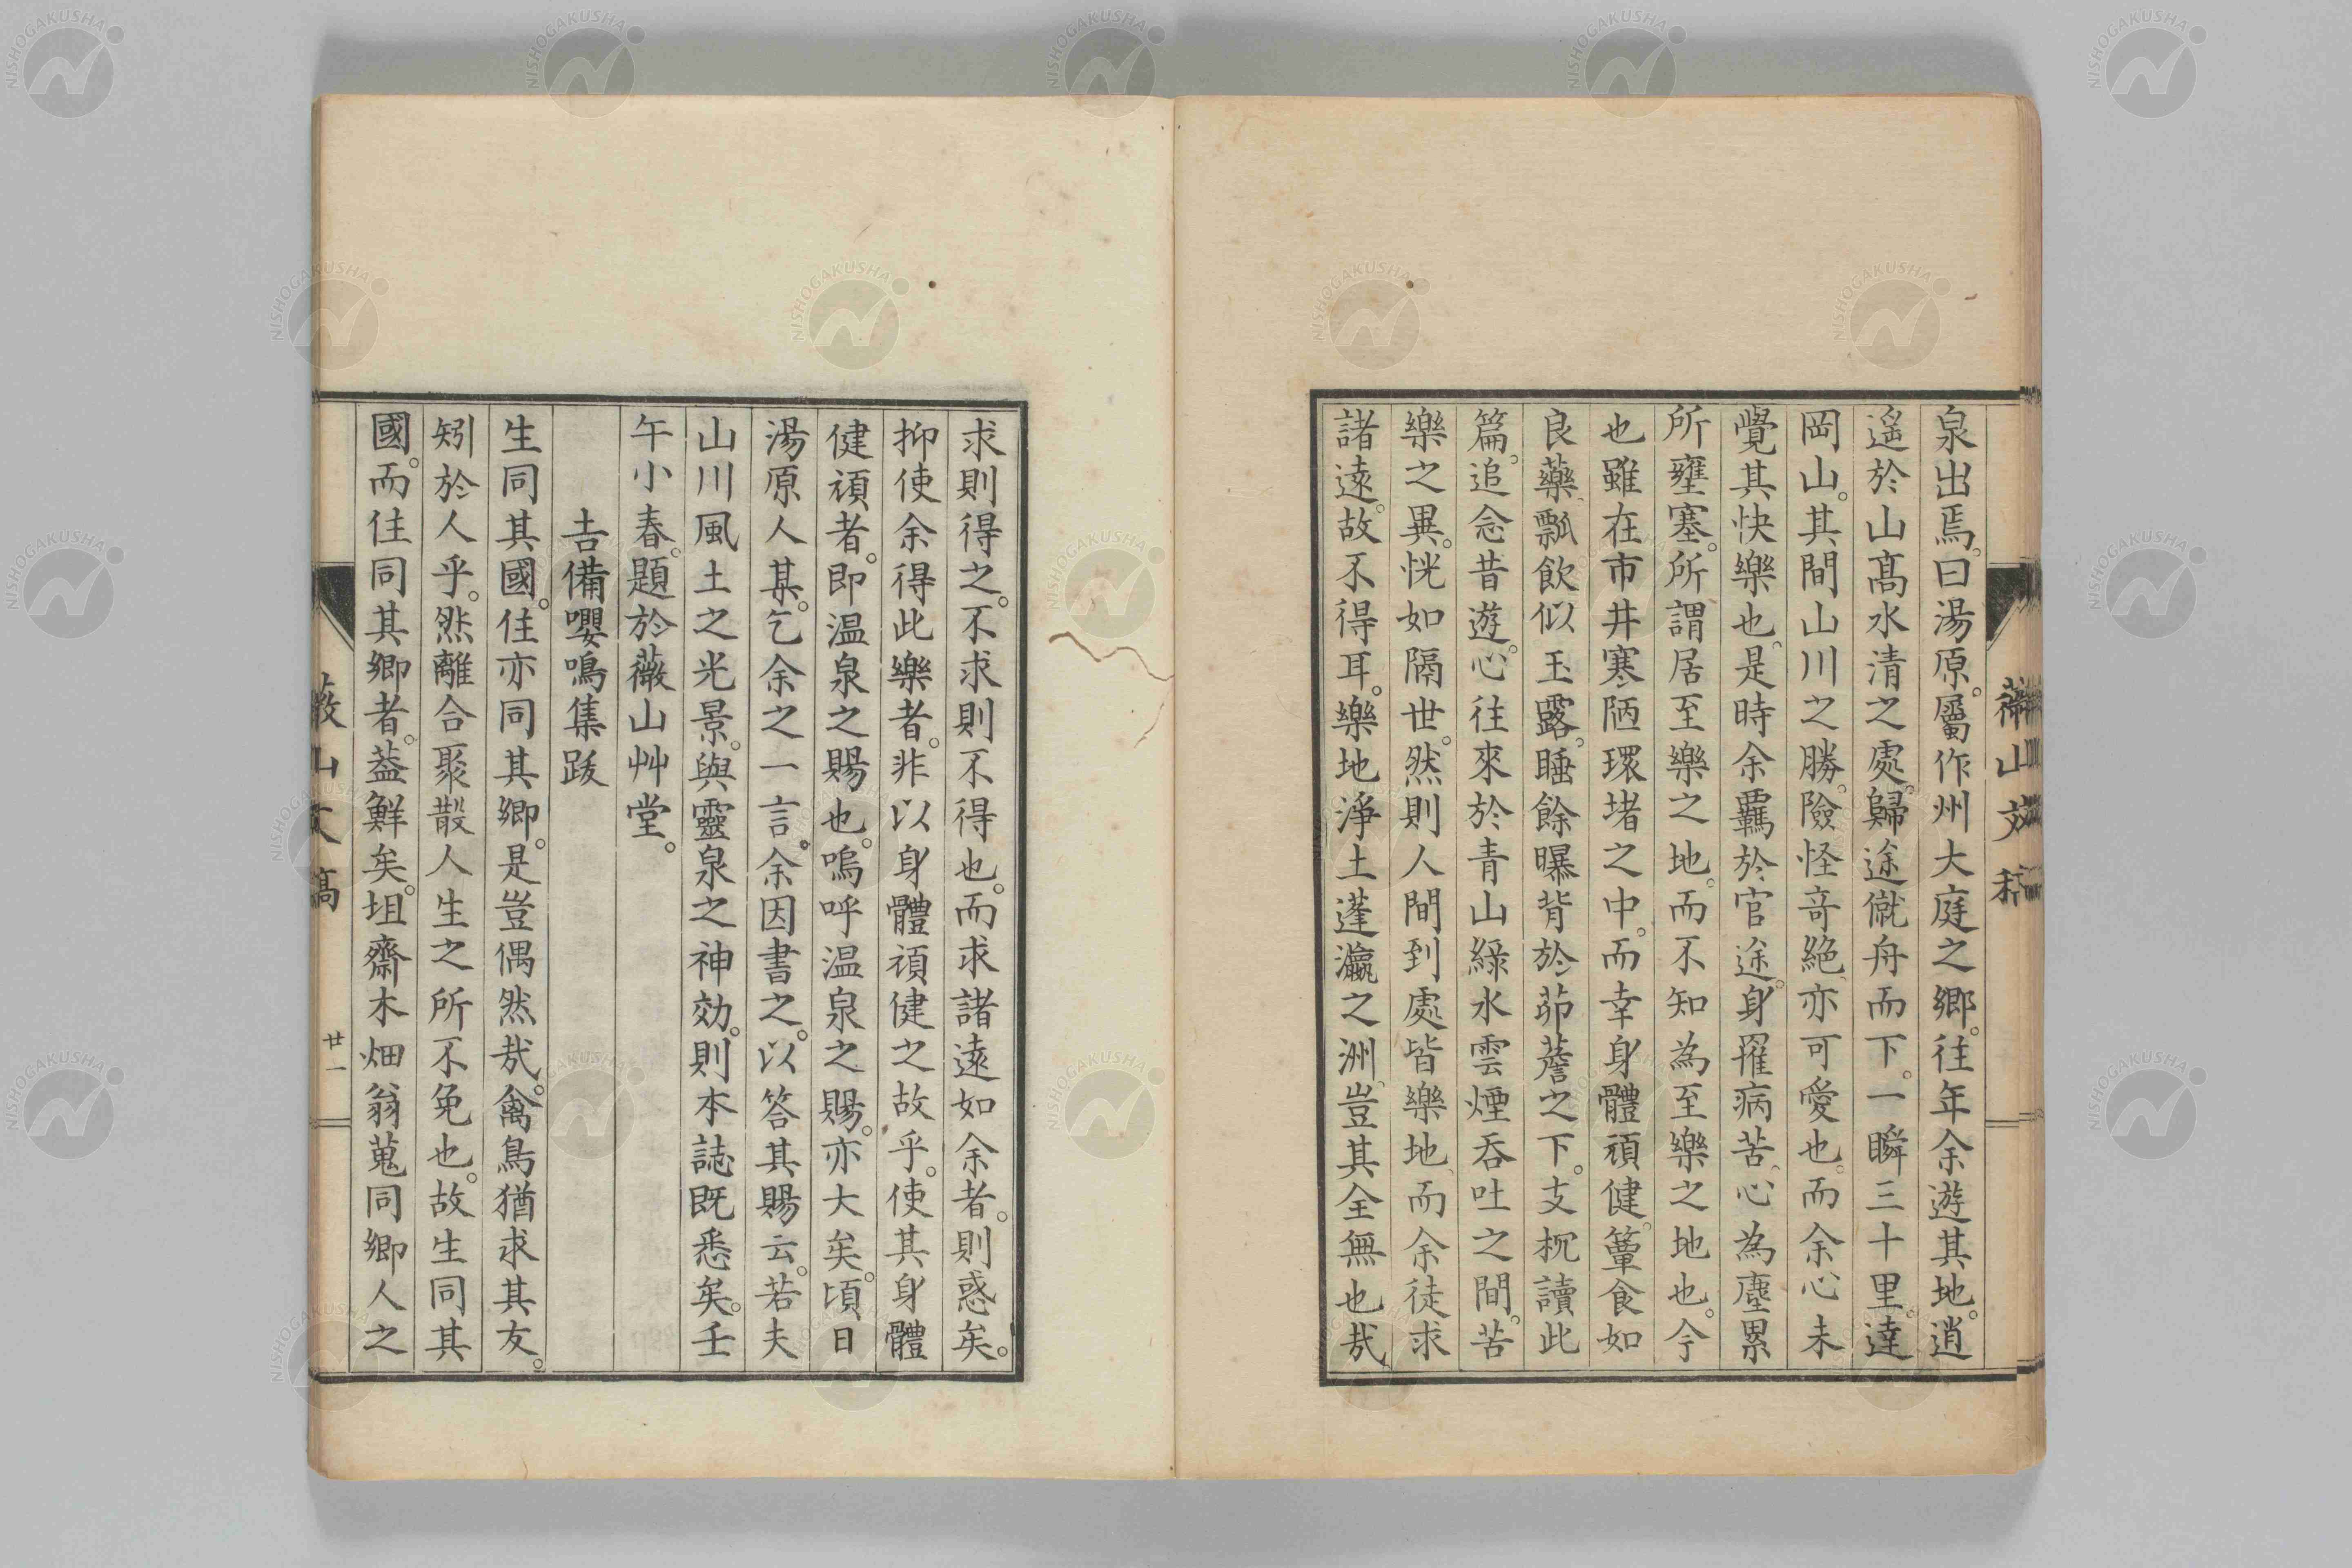 泉出焉。曰湯原。屬作州大庭之鄉。往年余遊其地。逍
遙於山高水清之處。歸途僦舟而下。一瞬三十里。達
岡山。其間山川之勝。險怪奇絕、亦可愛也。而余心未
覺其快樂也。是時余羈於官途。身罹病苦、心為塵累
所壅塞。所謂居至樂之地。而不知為至樂之地也。今
也雖在市井寒陋環堵之中。而幸身體頑健。簞食如
良藥、瓢飲似玉露。睡餘曝背於茆薝之下。支枕讀此
篇。追念昔遊。心往來於青山綠水雲煙吞吐之間。苦
樂之異。恍如隔世。然則人間到處皆樂地、而余徒求
諸遠。故不得耳。樂地淨土蓬瀛之洲、豈其全無也哉
薇山文稿
求則得之。不求則不得也。而求諸遠如余者。則惑矣。
抑使余得此樂者。非以身體頑健之故乎。使其身體
健頑者。即温泉之賜也。嗚呼温泉之賜。亦大矣。頃日
湯原人某。乞余之一言。余因書之。以答其賜云。若夫
山川風土之光景。與靈泉之神効。則本誌既悉矣。壬
午小春。題於薇山艸堂。
吉備嚶鳴集跋
生同其國。住亦同其鄉。是豈偶然哉。禽鳥猶求其友。
矧於人乎。然離合聚散人生之所不免也。故生同其
國。而住同其鄉者。葢鮮矣。坦齋木畑翁蒐同鄉人之
薇山文稿
廿一
NISHOGAKUSHA